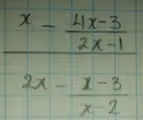 x - \frac{4x-3}{2x-1}
2x - \frac{x-3}{x-2}